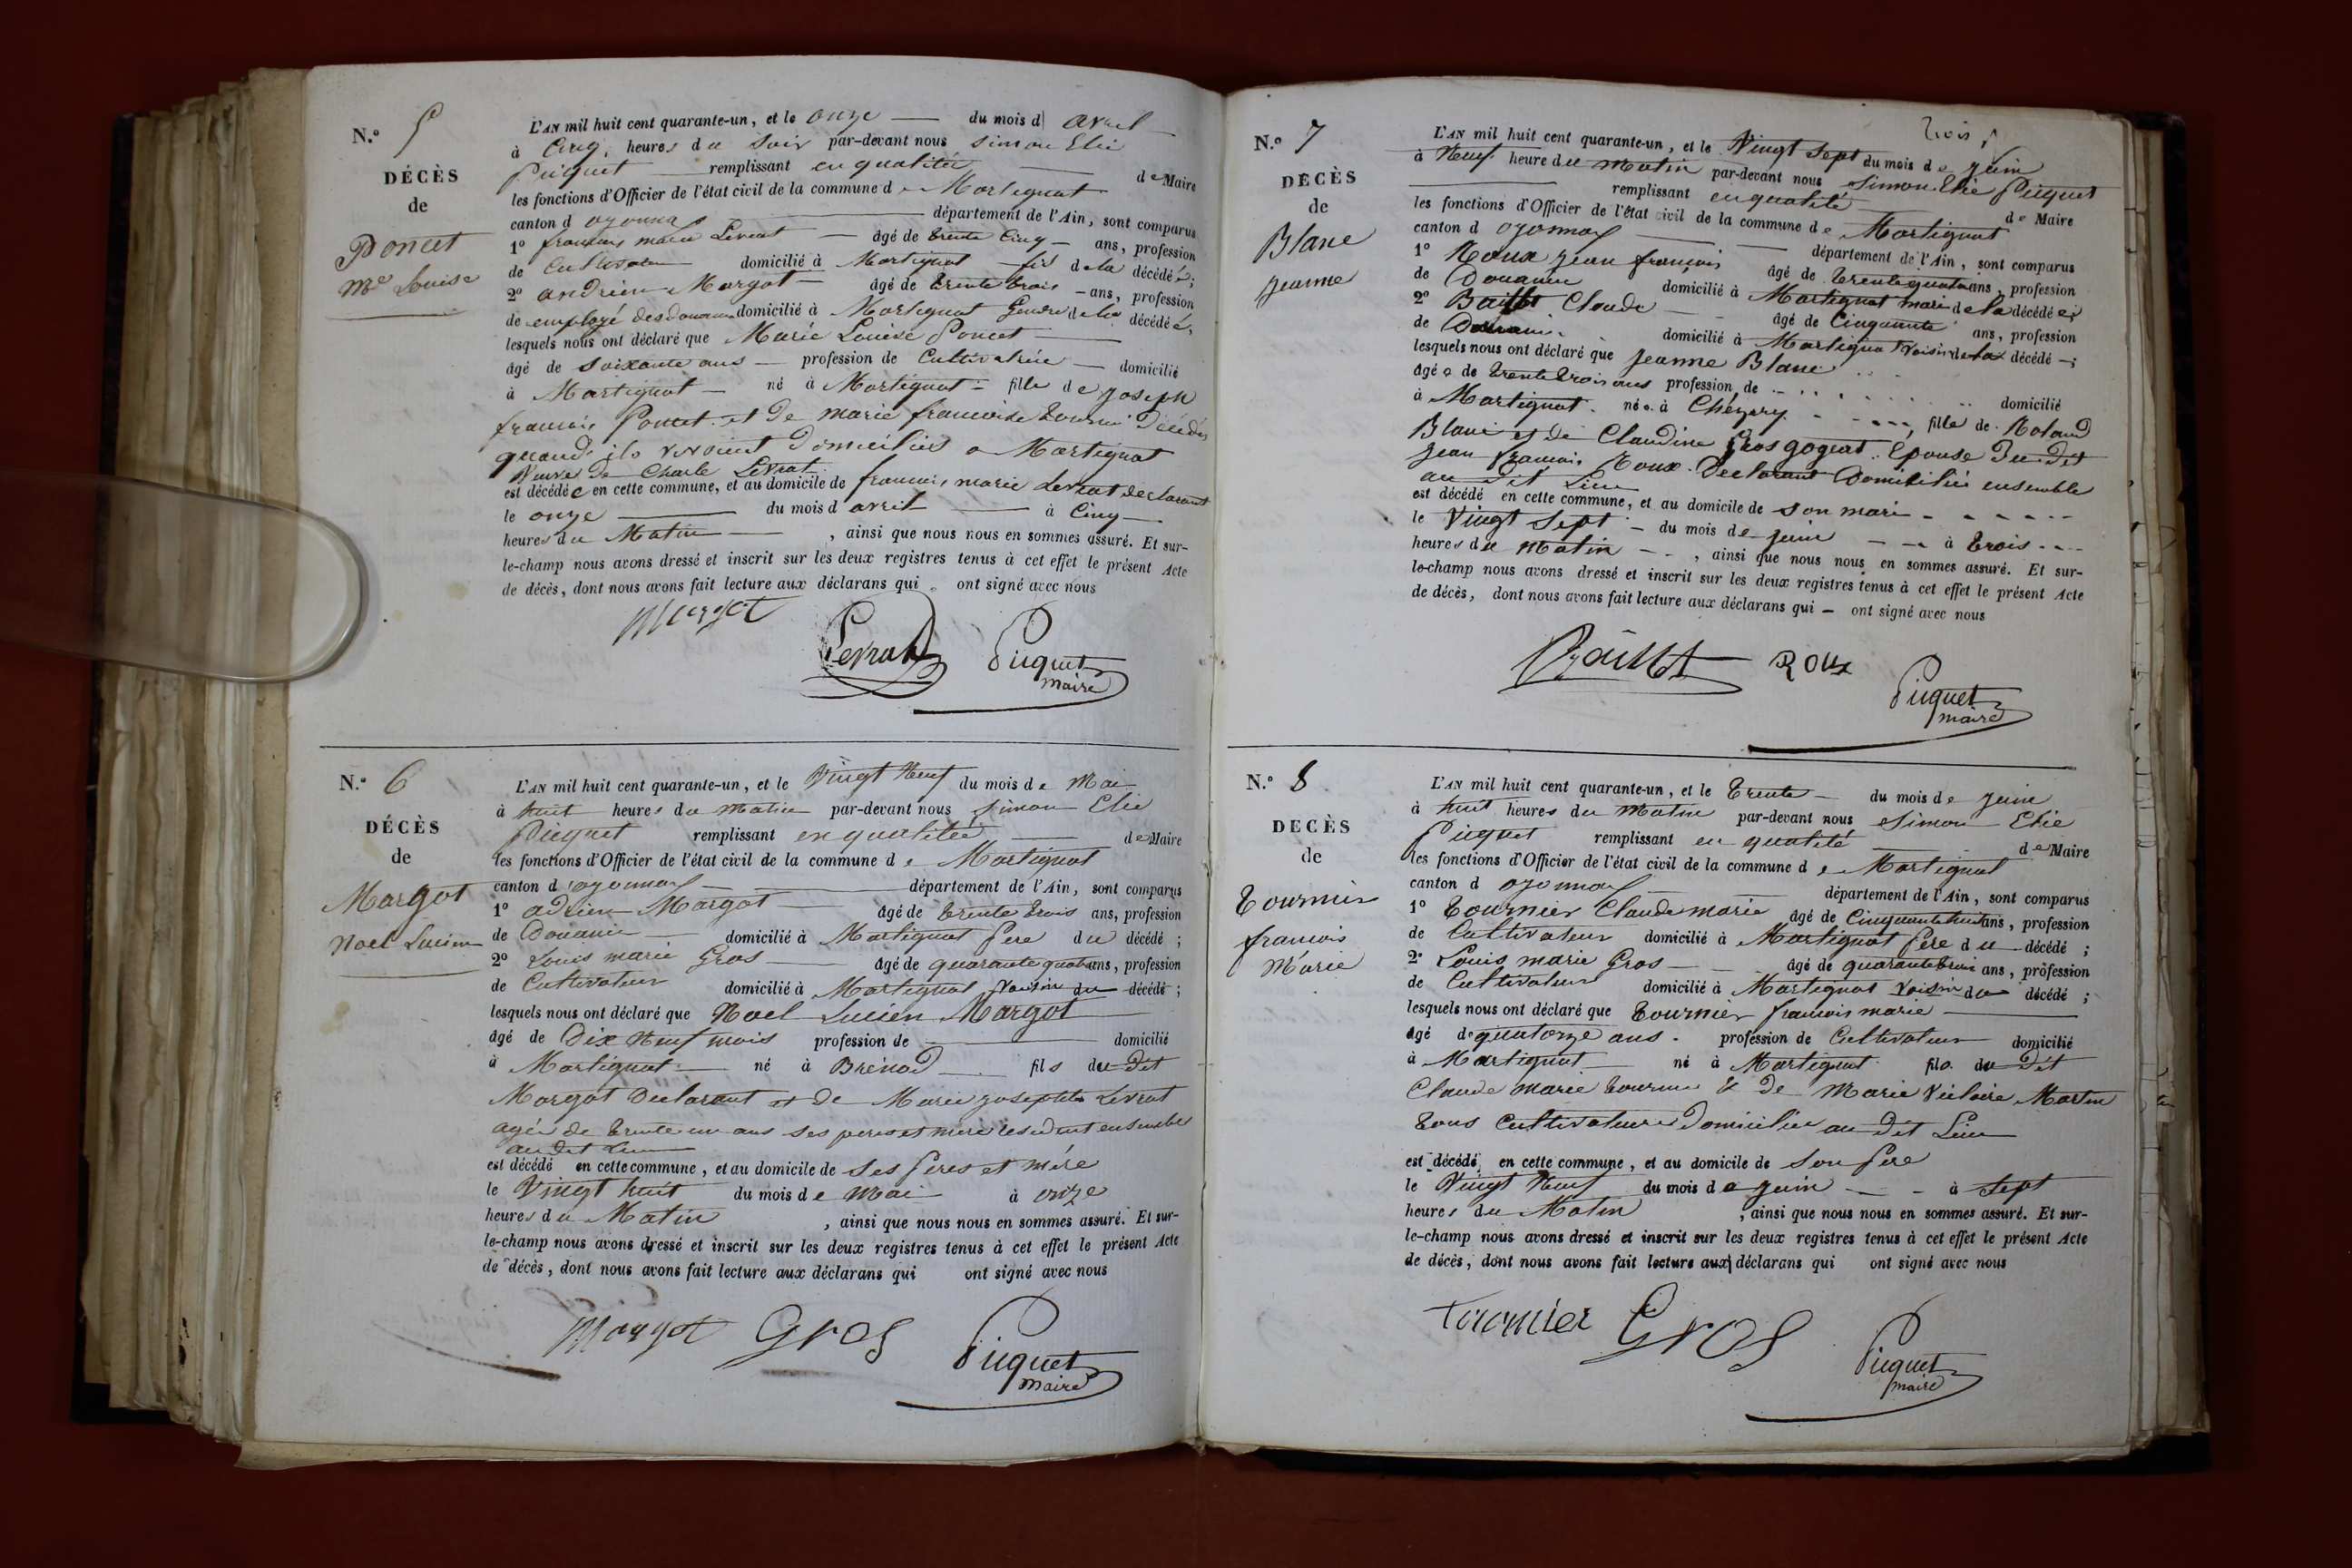 N.° 5
DÉCÈS
de
Poncet
Mie Louise
L'AN mil huit cent quarante-un, et le onze du mois d avril
à Cinq heures du Soir par-devant nous Simon Elie
Picquet remplissant en qualitée de Maire
les fonctions d'Officier de l'état civil de la commune de Martignat
canton d oyonnax département de l'Ain, sont comparus
1° francois marie Levrat âgé de trente Cinq ans, profession
de Cultivateur domicilié à Martignat fils de la décédée;
2° andrien Margot âgé de trente trois ans, profession
de employé des douanes domicilié à Martignat Gendre de la décédée,
lesquels nous ont déclaré que Marie Louise Poncet
âgé de soixante ans profession de Cultivatrice domicilié
à Martignat né à Martignat fille de joseph
francois Poncet et de marie francoise tournier décédés
quand ils vivoient domiciliés a Martignat
Veuve de Charle Levrat
est décédée en cette commune, et au domicile de francois marie Levrat declarant
le onze du mois d avril à Cinq
heures du Matin, ainsi que nous nous en sommes assuré. Et sur-
le-champ nous avons dressé et inscrit sur les deux registres tenus à cet effet le présent Acte
de décès, dont nous avons fait lecture aux déclarans qui ont signé avec nous
Margot Levrat Picquet
maire
N.° 6
DÉCÈS
de
Margot
Noel Lucien
L'AN mil huit cent quarante-un, et le Vingt Neuf du mois de Mai
à huit heures du Matin par-devant nous Simon Elie
Picquet remplissant en qualitée de Maire
les fonctions d'Officier de l'état civil de la commune de Martignat
canton d oyonnax département de l'Ain, sont comparus
1° adrien Margot âgé de trente trois ans, profession
de Douanier domicilié à Martignat Pere du décédé;
2° Louis marie Gros âgé de quarante quatre ans, profession
de Cultivateur domicilié à Martignat Voisin du décédé;
lesquels nous ont déclaré que Noel Lucien Margot
âgé de Dix Neuf mois profession de domicilié
à Martignat né à Brénod fils du dit
Margot Declarant et de Marie josephte Levrat
agée de trente un ans ses peres et mere residant ensemble
au dit Lieu
est décédé en cette commune, et au domicile de Ses Peres et mére
le Vingt huit du mois de Mai à onze
heures du Matin, ainsi que nous nous en sommes assuré. Et sur-
le-champ nous avons dressé et inscrit sur les deux registres tenus à cet effet le présent Acte
de décès, dont nous avons fait lecture aux déclarans qui ont signé avec nous
Margot Gros Picquet
maire
trois
N.° 7
DÉCÈS
de
Blanc
jeanne
L'AN mil huit cent quarante-un, et le Vingt Sept du mois de juin
à Neuf heure du Matin par-devant nous Simon Elie Picquet
remplissant en qualité de Maire
les fonctions d'Officier de l'état civil de la commune de Martignat
canton d oyonnax département de l'Ain, sont comparus
1° Roux jean francois âgé de trente quatre ans, profession
de Douanier domicilié à Martignat mari de la décédée;
2° Baillot Claude âgé de Cinquante ans, profession
de Douanier domicilié à Martignat Voisin de la décédé;
lesquels nous ont déclaré que jeanne Blanc
âgée de trente trois ans profession de domicilié
à Martignat née à Chézery, fille de Roland
Blanc et de Claudine Gros gogeat Epouse du dit
jean francois Roux Declarant Domiciliés ensemble
au dit Lieu
est décédé en cette commune, et au domicile de son mari
le Vingt Sept du mois de juin à trois
heures du Matin, ainsi que nous nous en sommes assuré. Et sur-
le-champ nous avons dressé et inscrit sur les deux registres tenus à cet effet le présent Acte
de décès, dont nous avons fait lecture aux déclarans qui ont signé avec nous
Baillot Roux Picquet
maire
N.° 8
DÉCÈS
de
Tournier
francois
Marie
L'AN mil huit cent quarante-un, et le trente du mois de juin
à huit heures du Matin par-devant nous Simon Elie
Picquet remplissant en qualité de Maire
les fonctions d'Officier de l'état civil de la commune de Martignat
canton d oyonnax département de l'Ain, sont comparus
1° Tournier Claude marie âgé de Cinquante huit ans, profession
de Cultivateur domicilié à Martignat Pere du décédé;
2° Louis marie Gros âgé de quarante trois ans, profession
de Cultivateur domicilié à Martignat Voisin du décédé;
lesquels nous ont déclaré que Tournier francois marie
âgé de quatorze ans. profession de Cultivateur domicilié
à Martignat né à Martignat fils du dit
Claude Marie tournier & de Marie Victoire Martin
tous Cultivateurs Domiciliés au dit Lieu
est décédé en cette commune, et au domicile de Son Pere
le Vingt Neuf du mois de juin à Sept
heures du Matin, ainsi que nous nous en sommes assuré. Et sur-
le-champ nous avons dressé et inscrit sur les deux registres tenus à cet effet le présent Acte
de décès, dont nous avons fait lecture aux déclarans qui ont signé avec nous
Tournier Gros Picquet
maire